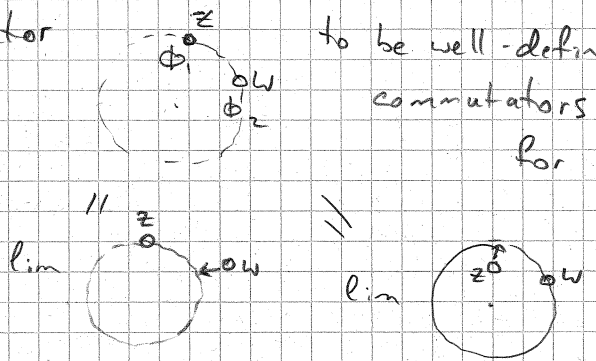 tor z to be well-defin
Φ₁ w commutators
Φ₂ for
" z \\
lim w lim z w